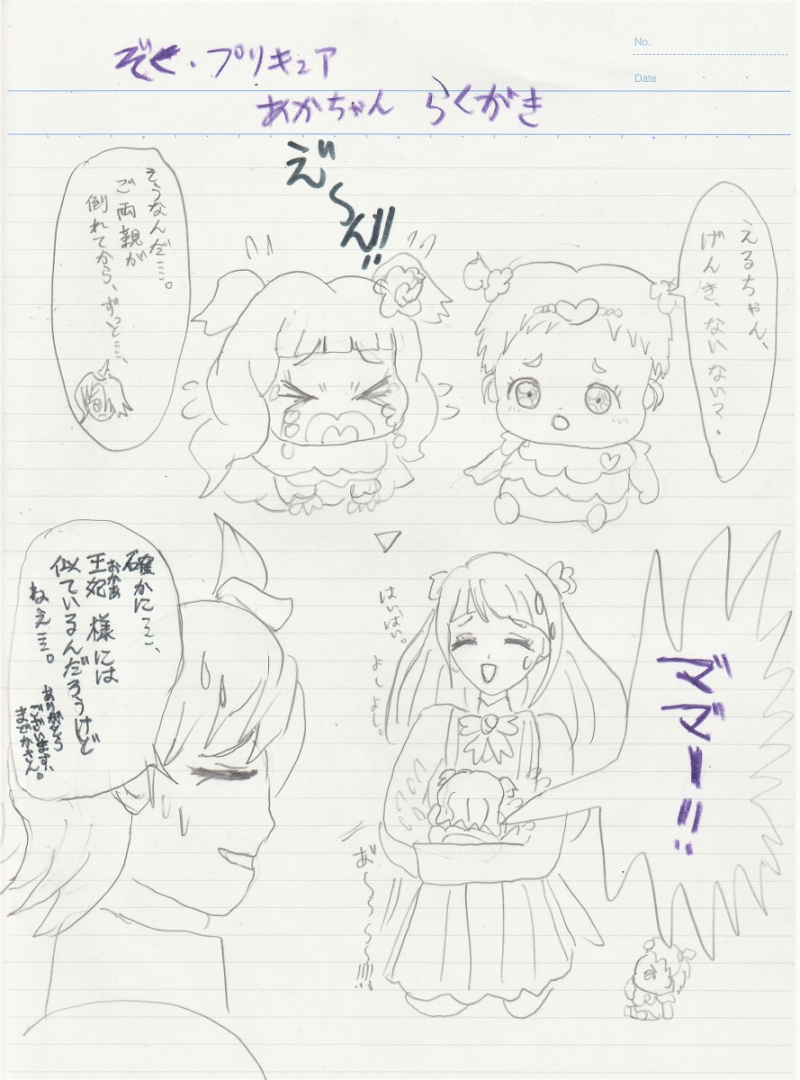 No.
Date
ぞく・プリキュア
あかちゃん らくがき
えるちゃん、
げんき、ないない?。
え〜ん!!
そうなんだ…。
ご両親が
倒れてから、ずっと…。
ママー!!
はいはい。
よしよし。
あ〜〜〜!!!!
確かに…、
王妃様には
おかあ
似ているんだろうけど
ねぇ…。
ありがとう
ございます、
まどかさん。